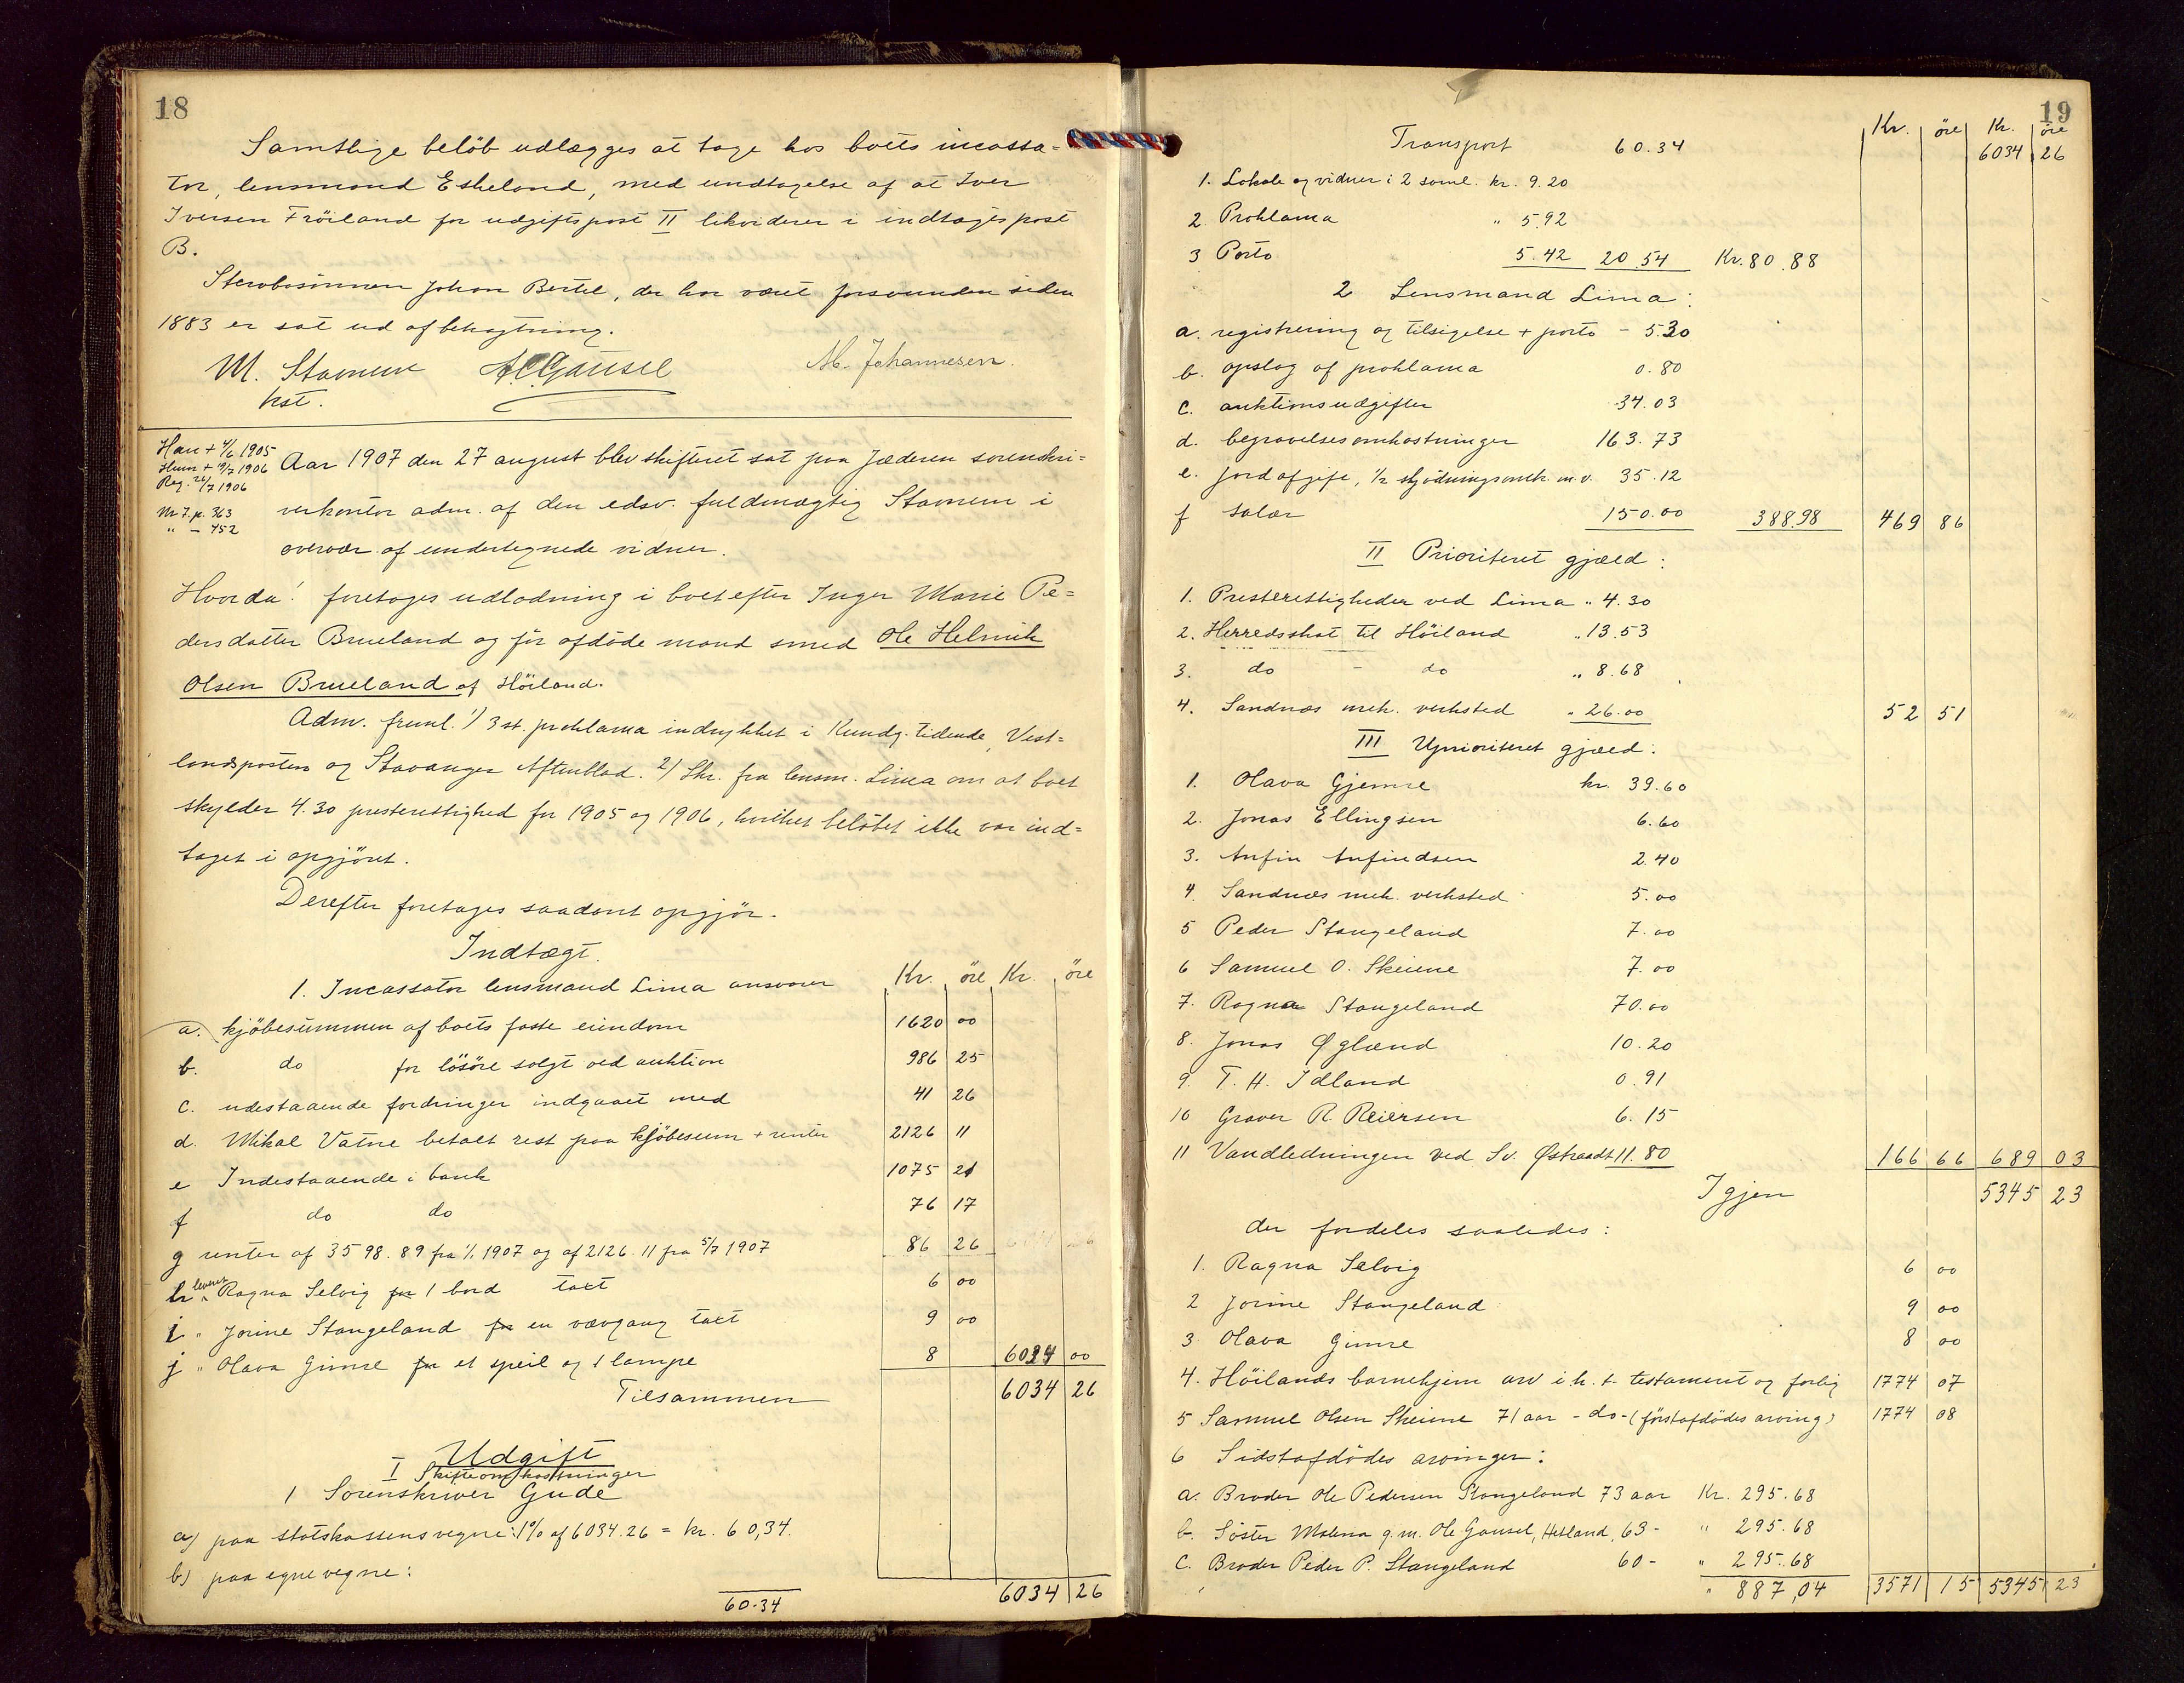 18
Samtlige beløb udlægges at tage hos boets incassa=
tor, lensmand Eskeland, med undtagelse af at Iver
Iversen Frøiland for udgiftspost II likviderer i indtægtspost
B.
Stervbosønnen Johan Bertel, der har været forsvunden siden
1883 er sat ud af betragtning.
M. Stamnem
kst.
A E Gausel
M. Johannesen.
Han + 4/6 1905
Hun + 19/7 1906
Reg. 26/7 1906
Nr 7. p. 363
" - 452
Aar 1907 den 27 august blev skifteret sat paa Jæderen sorenskri=
verkontor adm. af den edsv. fuldmægtig Stamnem i
overvær af undertegnede vidner.
Hvorda! foretoges udlodning i boet efter Inger Marie Pe=
dersdatter Brueland og før afdøde mand smed Ole Helmik
Olsen Brueland af Høiland.
Adm. freml. 1) 3 st. proklama indrykket i Kundg. tidende, Vest=
landsposten og Stavanger Aftenblad. 2) Skr. fra lensm. Lima om at boet
skylder 4.30 presterettighed for 1905 og 1906, hvilket beløbet ikke var ind=
taget i opgjøret.
Derefter foretages saadant opgjør.
Indtægt.
Kr. øre Kr. øre
1. Incassator lensmand Lima ansvarer
a. kjøbesummen af boets faste eiendom 1620 00
b. do for løsøre solgt ved auktion 986 25
c. udestaaende fordringer indgaaet med 41 26
d. Mikal Vatne betalt rest paa kjøbesum + renter 2126 11
e Indestaaende i bank 1075 21
f do do 76 17
g renter af 3598.89 fra 1/1 1907 og af 2126.11 fra 5/7 1907 86 26
h levert Ragna Selvig for 1 bord taxt 6 00
i " Jorine Stangeland for en vævgang taxt 9 00
j " Olava Gimre for et speil og 1 lampe 8 6034 00
Tilsammen 6034 26
Udgift
I Skifteomkostninger
1 Sorenskriver Gude
a) paa statskassens vegne: 1% af 6034.26 = kr. 60,34.
b) paa egne vegne:
60.34 6034 26
19
Kr. øre Kr. øre
Transport 60.34 6034 26
1. Lokale og vidner i 2 saml. kr. 9.20
2. Proklama " 5.92
3 Porto 5.42 20.54 Kr. 80.88
2 Lensmand Lima:
a. registrering og tilsigelse + porto - 5.30
b. opslag af proklama 0.80
c. auktionsudgifter 34.03
d. begravelsesomkostninger 163.73
e. jordafgift, 1/2 skjødningsomk. m.v. 35.12
f salær 150.00 388.98 469 86
II Prioriteret gjæld:
1. Presterettigheder ved Lima " 4.30
2. Herredsskat til Høiland " 13.53
3. do - do " 8.68
4. Sandnæs mek. verksted " 26.00 52 51
III Uprioriteret gjæld:
1. Olava Gjemre kr. 39.60
2. Jonas Ellingsen 6.60
3. Anfin Anfindsen 2.40
4. Sandnæs mek. verksted 5.00
5 Peder Stangeland 7.00
6 Samuel O. Skeiene 7.00
7. Ragna Stangeland 70.00
8. Jonas Øglænd 10.20
9. T. H. Idland 0.91
10 Graver R. Reiersen 6.15
11 Vandledningen ved Sv. Østraadt 11.80 166 66 689 03
Igjen 5345 23
der fordeles saaledes:
1. Ragna Selvig 6 00
2 Jorine Stangeland 9 00
3 Olava Gimre 8 00
4. Høilands barnehjem arv i.h.t. testament og forlig 1774 07
5 Samuel Olsen Skeiene 71 aar - do - (førstafdødes arving) 1774 08
6 Sidstafdødes arvinger:
a. Broder Ole Pedersen Stangeland 73 aar Kr. 295.68
b. Søster Malena g.m. Ole Gausel, Hetland, 63 - " 295.68
c. Broder Peder P. Stangeland 60 - " 295.68
" 887,04 3571 15 5345 23